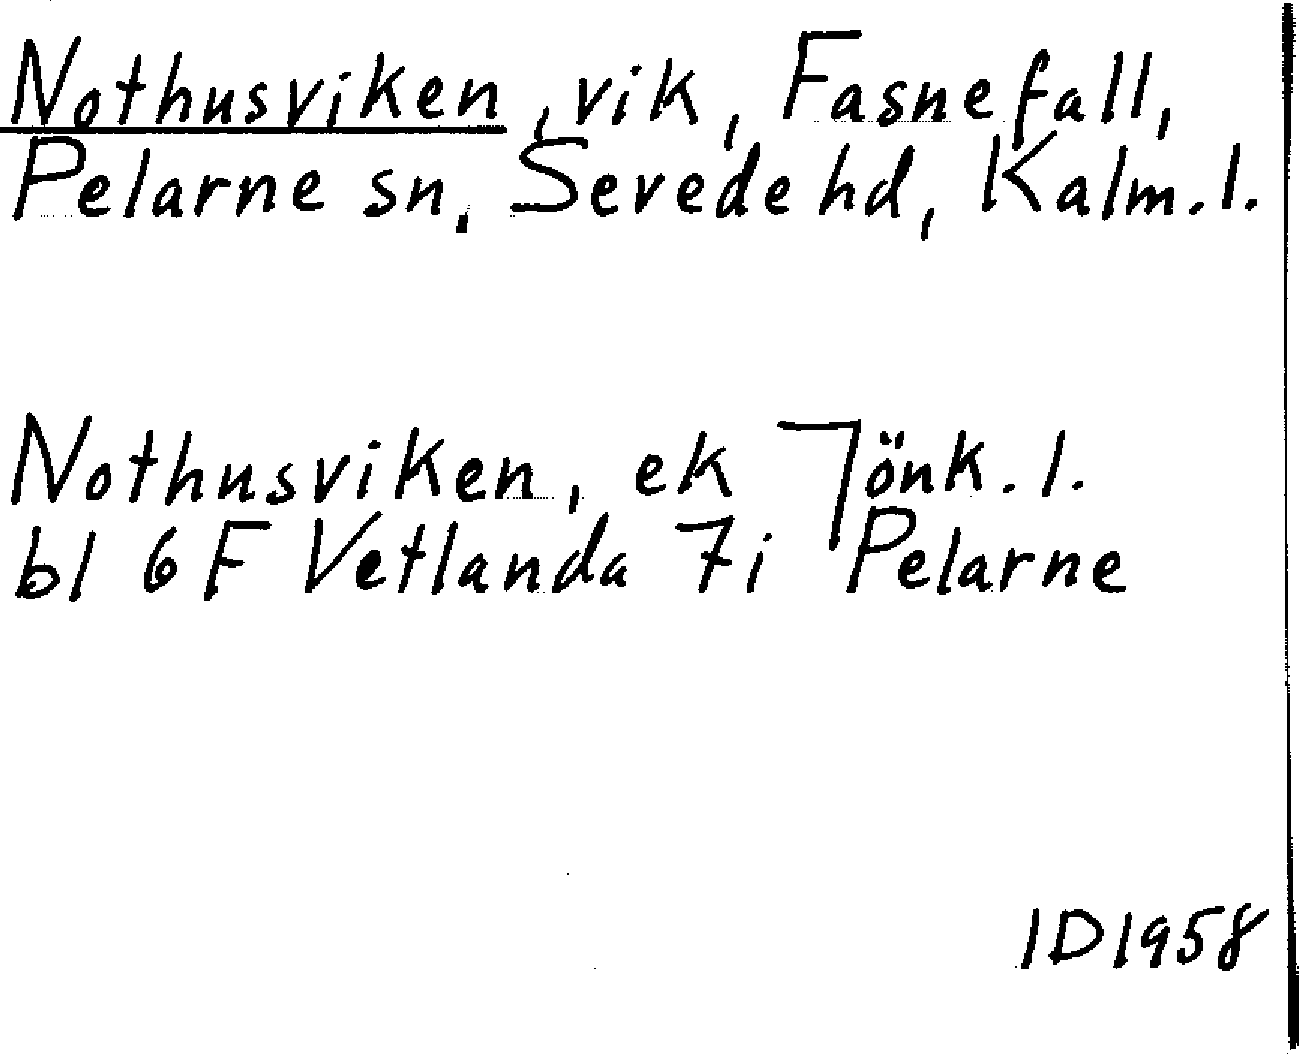 Nothusviken, vik, Fasnefall,
Pelarne sn, Sevede hd, Kalm. l.
Nothusviken, ek Jönk. l.
bl 6 F Vetlanda 7i Pelarne
ID 1958